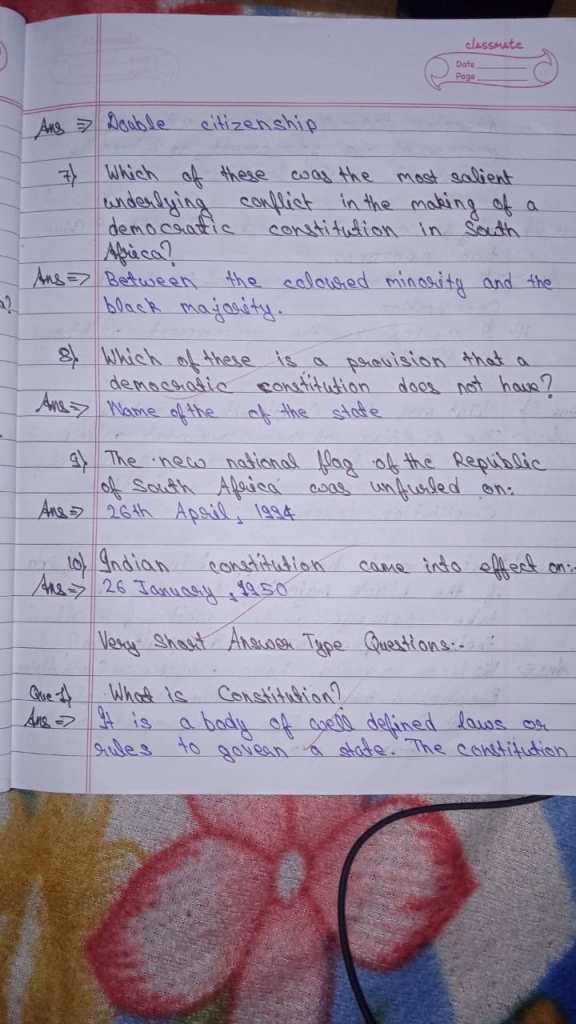 classmate
Date
Page
Ans ⇒ Double citizenship
7) Which of these was the most salient
underlying conflict in the making of a
democratic constitution in South
Africa?
Ans ⇒ Between the coloured minority and the
black majority.
8) Which of these is a provision that a
democratic constitution does not have?
Ans ⇒ Name of the of the state
9) The new national flag of the Republic
of South Africa was unfurled on:
Ans ⇒ 26th April, 1994
10) Indian constitution came into effect on:-
Ans ⇒ 26 January, 1950
Very Short Answer Type Questions:-
Que 1) What is Constitution?
Ans ⇒ It is a body of well defined laws or
rules to govern a state. The constitution